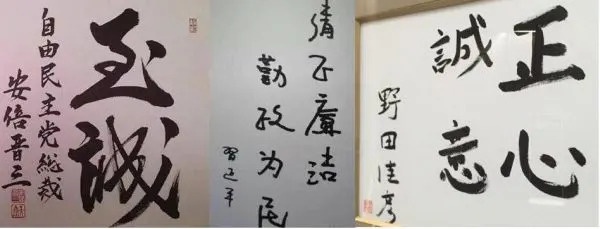 至誠
自由民主党総裁
安倍晋三
清正廉洁
勤政为民
習近平
正心
誠意
野田佳彦